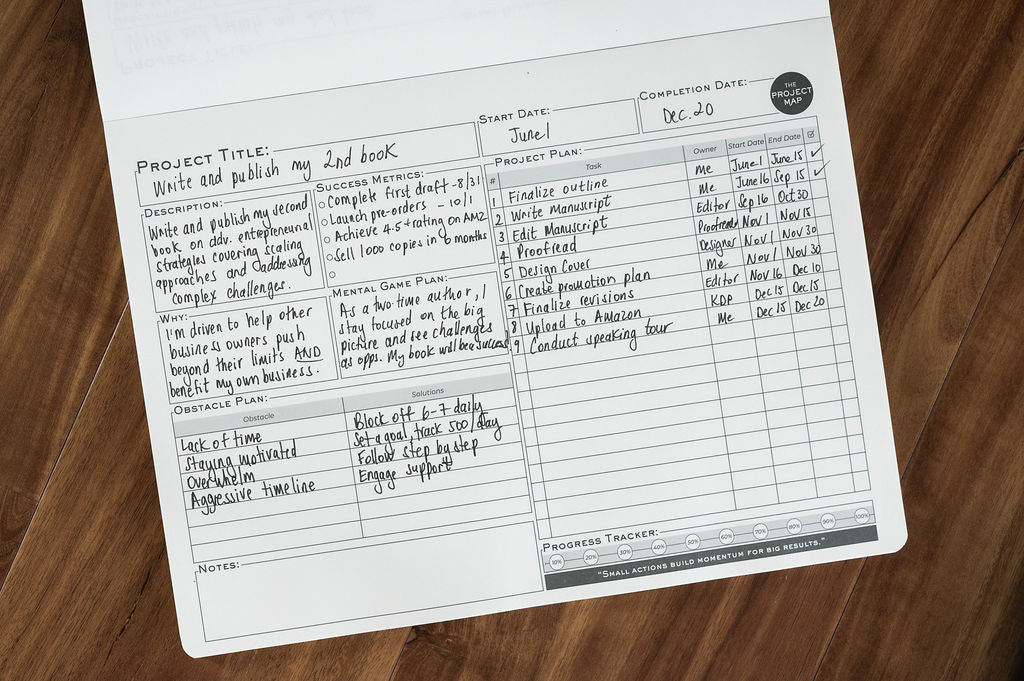 PROJECT TITLE:
Write and publish my 2nd book
START DATE:
June 1
COMPLETION DATE:
Dec. 20
THE
PROJECT
MAP
DESCRIPTION:
Write and publish my second
book on adv. entrepreneurial
strategies covering scaling
approaches and addressing
complex challenges.
SUCCESS METRICS:
Complete first draft - 8/31
Launch pre-orders - 10/1
Achieve 4.5+ rating on AMZ
Sell 1000 copies in 6 months
WHY:
I'm driven to help other
business owners push
beyond their limits AND
benefit my own business.
MENTAL GAME PLAN:
As a two-time author, I
stay focused on the big
picture and see challenges
as opps. My book will be a success!
OBSTACLE PLAN:
Obstacle Solutions
Lack of time Block off 6-7 daily
Staying motivated Set a goal, track 500/day
Overwhelm Follow step by step
Aggressive timeline Engage support
NOTES:
PROJECT PLAN:
# Task Owner Start Date End Date
1 Finalize outline Me June 1 June 15 ✓
2 Write Manuscript Me June 16 Sep 15 ✓
3 Edit Manuscript Editor Sep 16 Oct 30
4 Proofread Proofreader Nov 1 Nov 15
5 Design Cover Designer Nov 1 Nov 30
6 Create promotion plan Me Nov 1 Nov 30
7 Finalize revisions Editor Nov 16 Dec 10
8 Upload to Amazon KDP Dec 15 Dec 15
9 Conduct speaking tour Me Dec 15 Dec 20
PROGRESS TRACKER:
10% 20% 30% 40% 50% 60% 70% 80% 90% 100%
"SMALL ACTIONS BUILD MOMENTUM FOR BIG RESULTS."